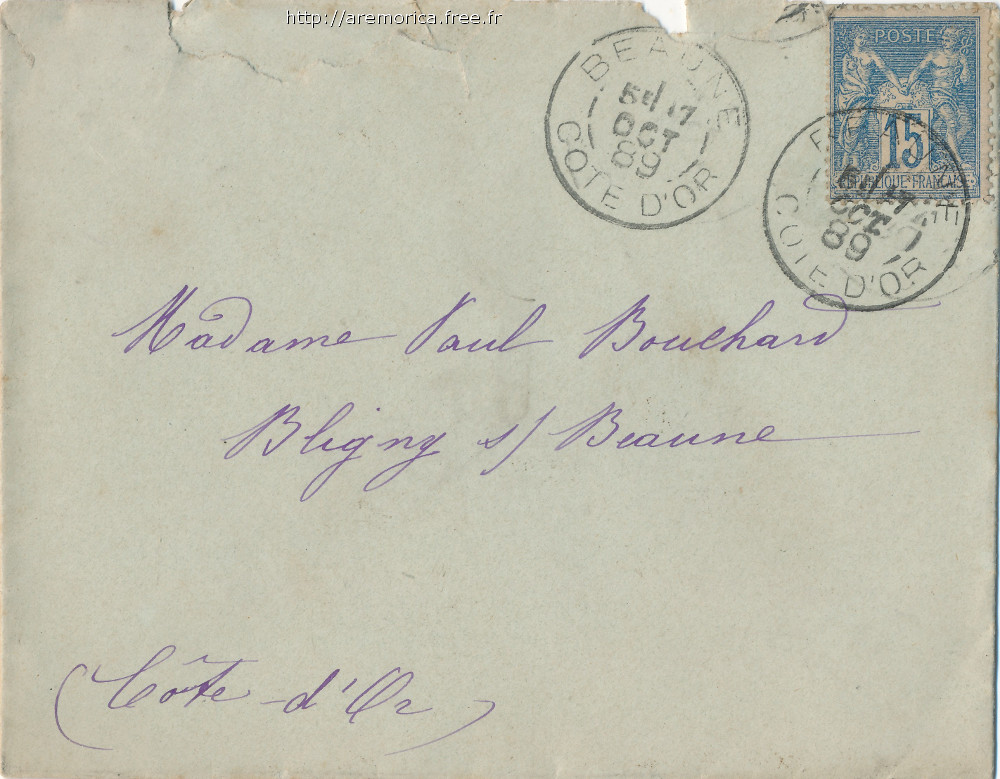 http://aremorica.free.fr
BEAUNE
17
OCT
89
COTE D'OR
POSTE
15
REPUBLIQUE FRANCAISE
BEAUNE
17
OCT
89
COTE D'OR
Madame Paul Bouchard
Bligny s/ Beaune
(Côte d'Or)